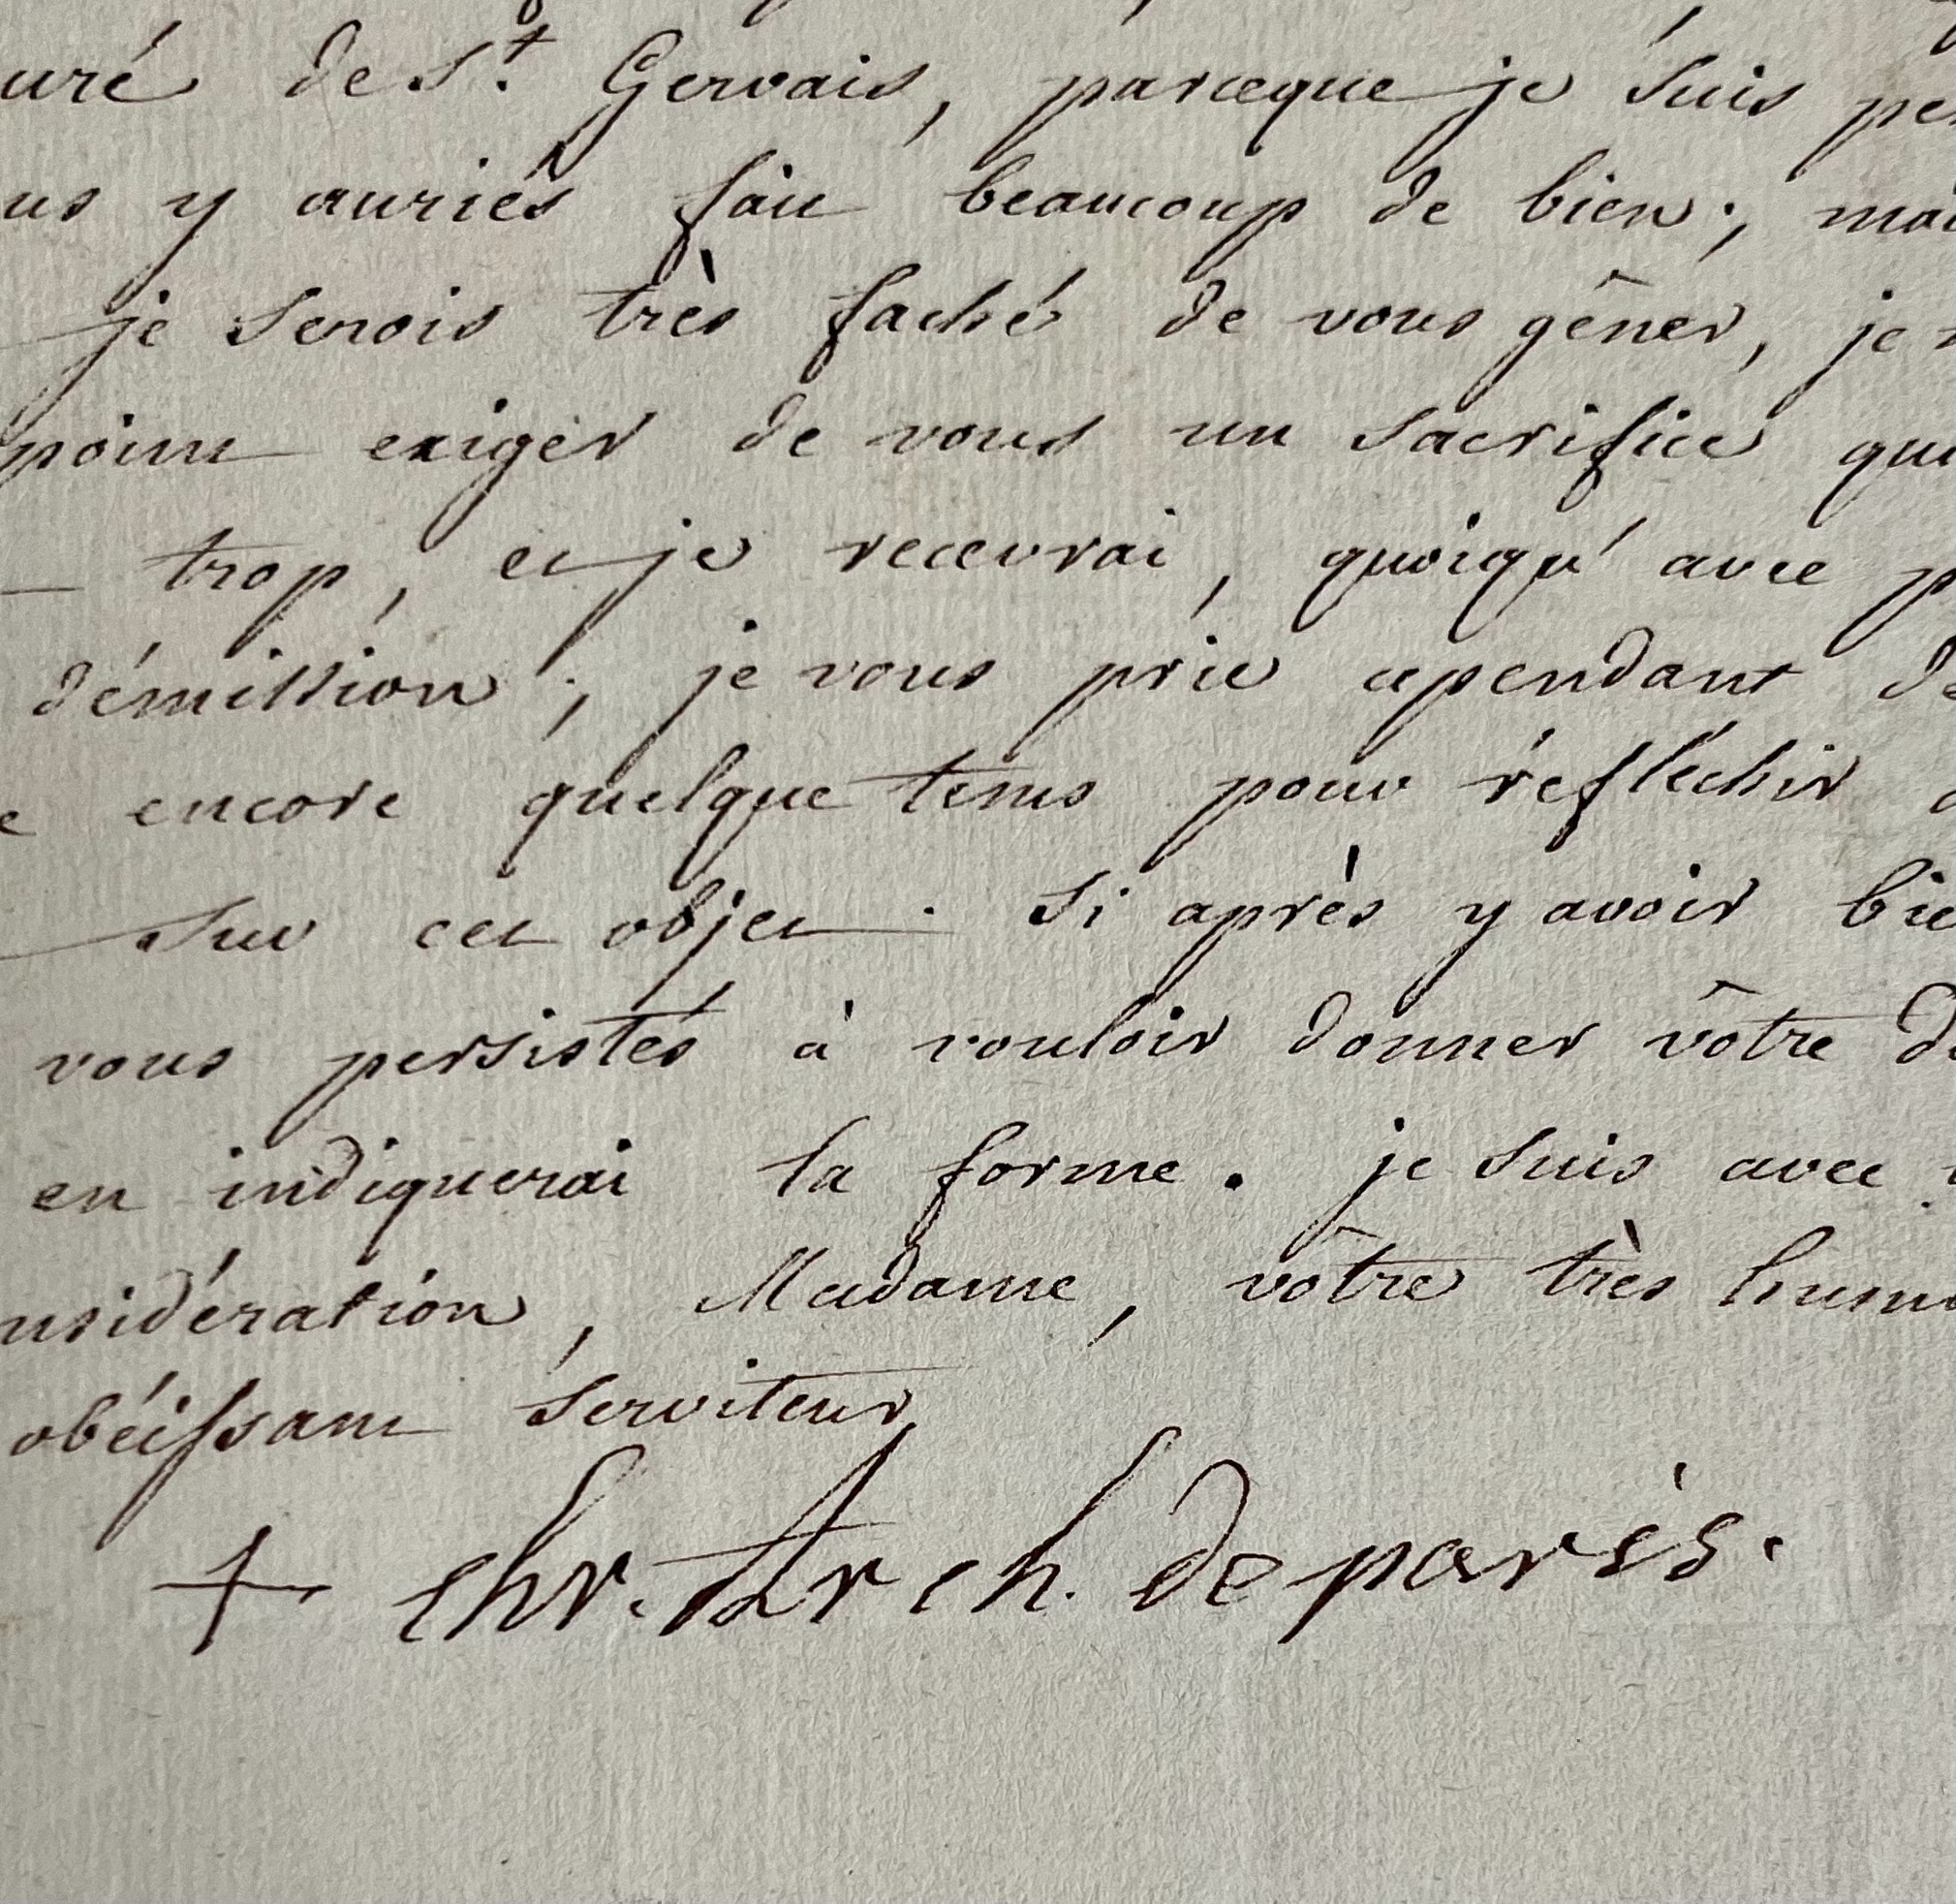 uré de S.t Gervais, parceque je suis pe
us y auriés fait beaucoup de bien; mai
je serois très faché de vous gêner, je
point exiger de vous un sacrifice qui
trop, et je recevrai, quoiqu'avec p
démission; je vous prie cependant de
e encore quelque tems pour réfléchir
sur cet objet. Si après y avoir bie
vous persistés à vouloir donner vôtre dé
en indiquerai la forme. je suis avec
nsidération, Madame, vôtre très humb
obéissant serviteur
+ chr. Arch. de paris.